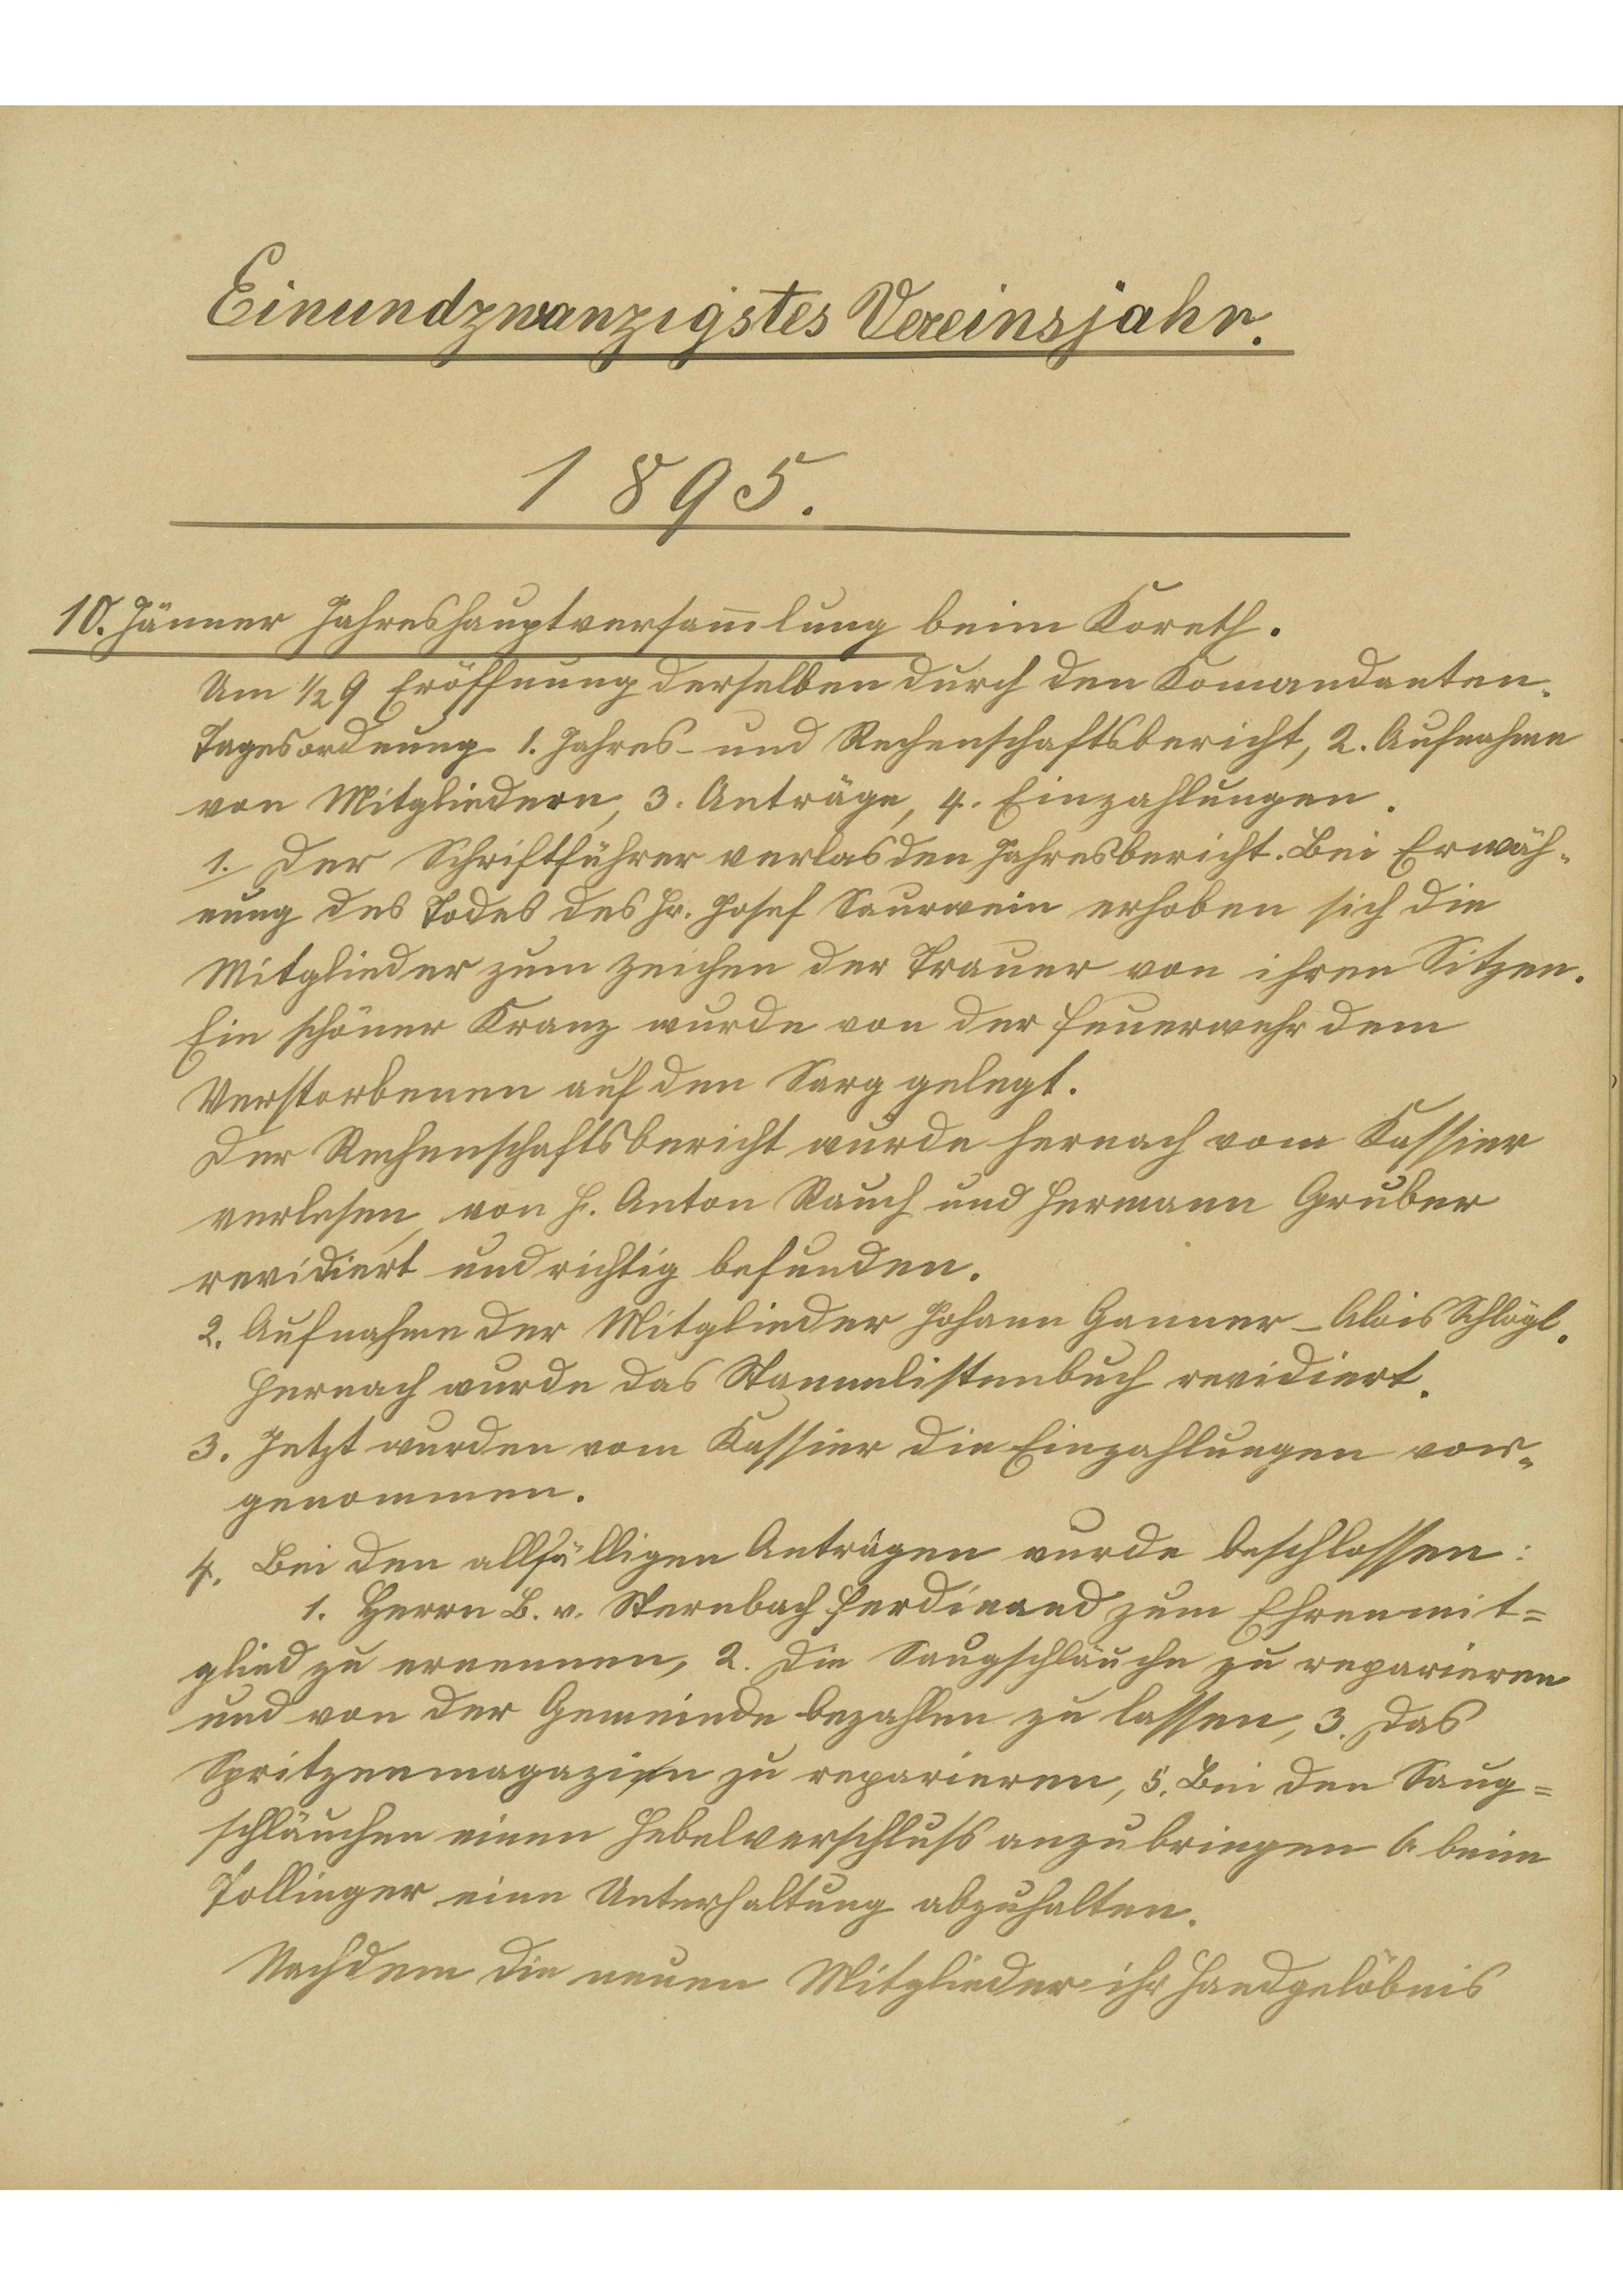 Einundzwanzigstes Vereinsjahr.
1895.
10. Jänner Jahreshauptversam̅lung beim Koreth.
Um ½ 9 Eröffnung derselben durch den Komandanten.
Tagesordnung 1. Jahres- und Rechenschaftsbericht, 2. Aufnahme
von Mitgliedern, 3. Anträge, 4. Einzahlungen.
1. Der Schriftführer verlas den Jahresbericht. Bei Erwäh-
nung des Todes des Hr. Josef Saurwein erhoben sich die
Mitglieder zum Zeichen der Trauer von ihren Sitzen.
Ein schöner Kranz wurde von der Feuerwehr dem
Verstorbenen auf den Sarg gelegt.
Der Rechenschaftsbericht wurde hernach vom Kassier
verlesen, von H. Anton Rauch und Hermann Gruber
revidiert und richtig befunden.
2. Aufnahme der Mitglieder Johann Ganner - Alois Schlögl.
Hernach wurde das Stammlistenbuch revidiert.
3. Jetzt wurden vom Kassier die Einzahlungen vor-
genommen.
4. Bei den allfälligen Anträgen wurde beschlossen:
1. Herrn B. v. Sternbach Ferdinand zum Ehrenmit=
glied zu ernennen, 2. Die Saugschläuche zu reparieren
und von der Gemeinde bezahlen zu lassen, 3. Das
Spritzenmagazin zu reparieren, 5. Bei den Saug=
schläuchen einen Hebelverschluss anzubringen 6. beim
Pollinger eine Unterhaltung abzuhalten.
Nachdem die neuen Mitglieder ihr Handgelöbnis